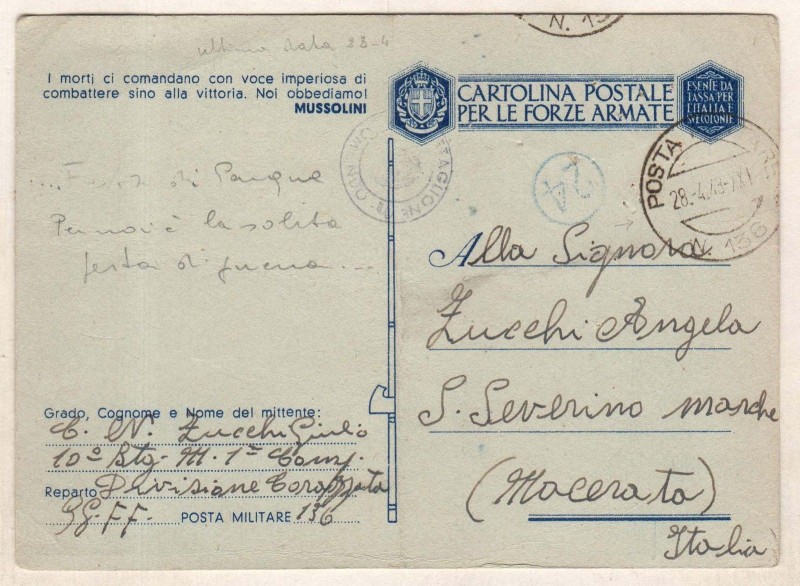 N. 136
ultima data 23-4
I morti ci comandano con voce imperiosa di
combattere sino alla vittoria. Noi obbediamo!
MUSSOLINI
CARTOLINA POSTALE
PER LE FORZE ARMATE
ESENTE DA
TASSA PER
L'ITALIA E
SVE COLONIE
POSTA
28.-4.43-XXI
N. 136
2A
...Festa di Pasqua
Per noi è la solita
festa di guerra...
Alla Signora
Zucchi Angela
S. Severino Marche
(Macerata)
Italia
Grado, Cognome e Nome del mittente:
C. N. Zucchi Giulio
10º Btg. M. 1ª Comp.
Reparto Divisione Corazzata
GG.FF. POSTA MILITARE 136